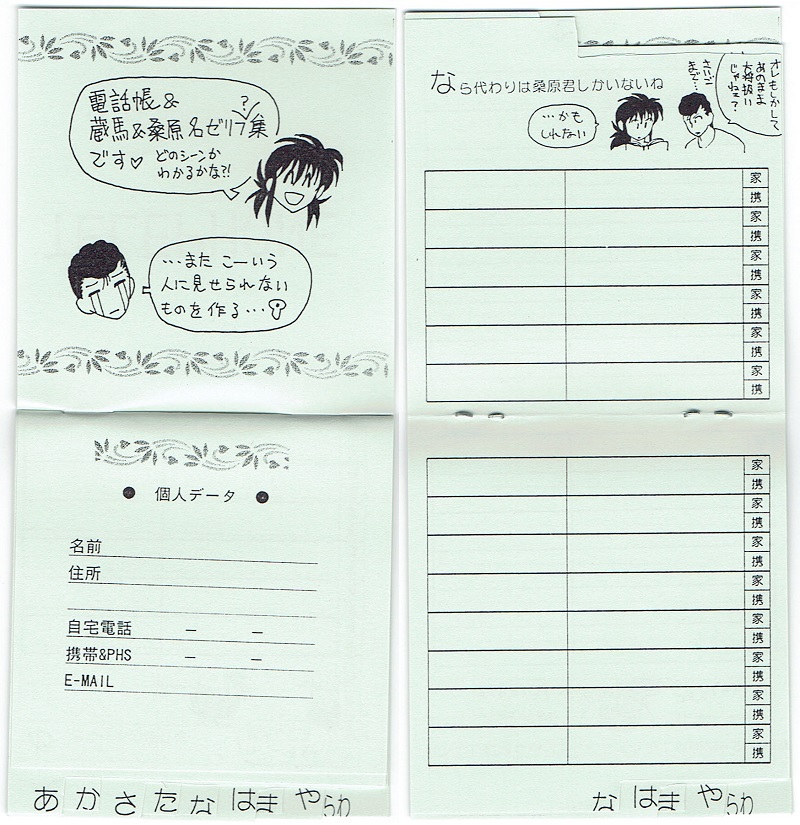 電話帳&
?
蔵馬&桑原名ゼリフ集
です♡ どのシーンか
わかるかな?!
…また こーいう
人に見せられない
ものを作る…
● 個人データ ●
名前
住所
自宅電話 ― ―
携帯&PHS ― ―
E-MAIL
あ か さ た な は ま や ら わ
なら代わりは桑原君しかいないね
…かも
しれない
さいごまで…
オレもしかして
あのまま
大将扱い
じゃねェ?
家
携
家
携
家
携
家
携
家
携
家
携
家
携
家
携
家
携
家
携
家
携
家
携
家
携
家
携
な は ま や ら わ